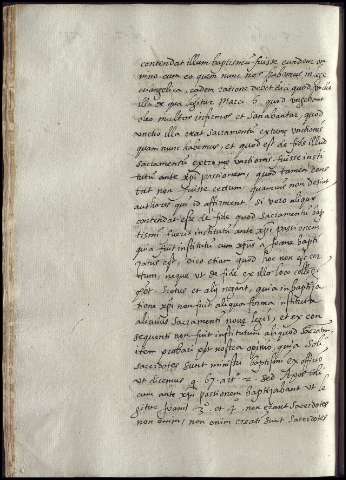 contendat illum baptismū fuisse eundem om
nino cum eo quem nunc nos habemus in lege
euangelica, eadem ratione debet dici quod unctio
illa ex qua legitur Marci 6. quod ungebant
oleo multos infirmos et sanabantur, quod
unctio illa erat sacramentū extreme unctionis
quam nunc habemus, et quod est de fide illud
sacramentū extreme unctionis fuisse insti
tutū ante xp̄i passionem, quod tamen cons
tat non fuisse certum, quamuis non desint
authores qui id affirment. si vero aliquis
contendat esse de fide quod sacramentū bap
tismi fuerit institutū ante xp̄i passionem
quia fuit institutū cum xp̄us a Joanne bapti
zatus est, dico etiam quod hoc non est cer
tum, neque ut de fide ex illo loco colligi
potest. Scotus et alij negant, quia in baptiza
tione xp̄i non fuit aliqua forma instituta
alicuius sacramenti noue legis, et ex con
sequenti non fuit institutum aliquod sacram.
item probari potest nostra opinio, quia soli
sacerdotes sunt ministri baptismi ex officio
ut dicemus q. 67. art. 2. sed Apostoli
cum ante xp̄i passionem baptizabant ut le
gitur Joann. 3. et 4. non erant sacerdotes
non enim creati sunt sacerdotes